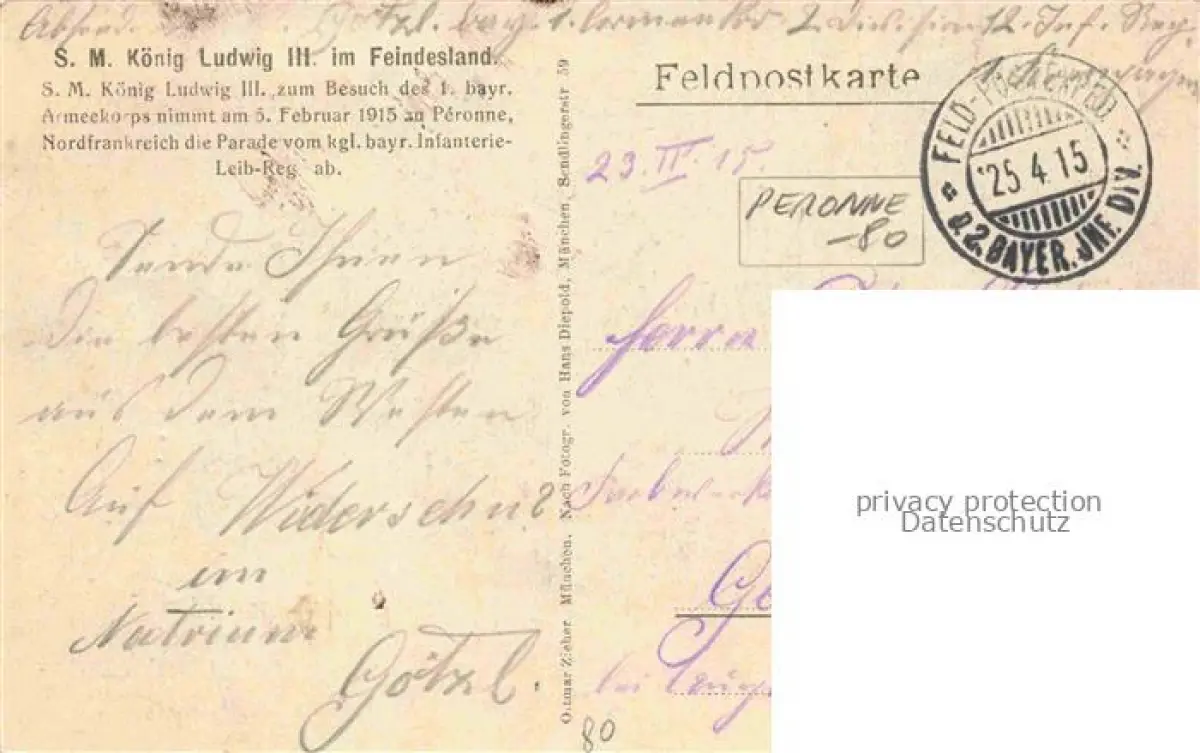 Götzl. bay. 1. Armee Kor 2. Division 12. Inf. Reg.
S. M. König Ludwig III. im Feindesland.
S. M. König Ludwig III. zum Besuch des 1. bayr.
Armeekorps nimmt am 5. Februar 1915 zu Péronne,
Nordfrankreich die Parade vom kgl. bayr. Infanterie-
Leib-Reg. ab.
Sende Ihnen
die besten Grüße
aus dem Westen
Auf Widersehn
im
Natrium
Götzl.
Ottmar Zieher München. Nach Fotogr. von Hans Diepold, München, Sendlingerstr 59
Feldpostkarte
FELD-
25 4 15
D. 2. BAYER. JNF. DIV.
23. IV. 15.
PERONNE
-80
Herrn
Ge
bei
80
privacy protection
Datenschutz